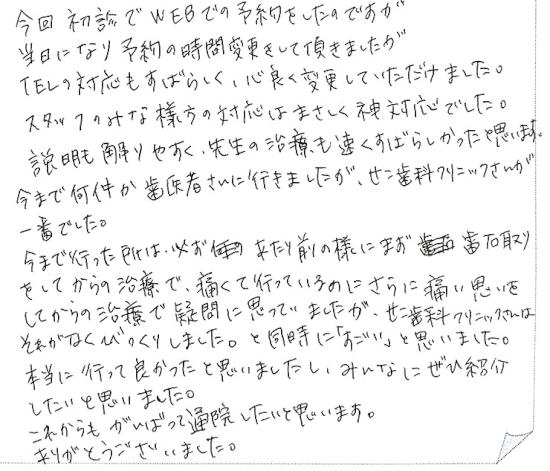 今回 初診でWEBでの予約をしたのですが
当日になり予約の時間変更をして頂きましたが
TELの対応もすばらしく、心良く変更していただけました。
スタッフのみな様方の対応はまさしく神対応でした。
説明も解りやすく、先生の治療も速くすばらしかったと思います。
今まで何件か歯医者さんに行きましたが、せこ歯科クリニックさんが
一番でした。
今まで行った所は、必ず 来たり前の様にまず 歯石取り
をしてからの治療で、痛くて行っているのにさらに痛い思いを
してからの治療で疑問に思っていましたが、せこ歯科クリニックさんは
それがなくびっくりしました。と同時に「すごい」と思いました。
本当に行って良かったと思いましたし、みんなにぜひ紹介
したいと思いました。
これからも がんばって通院したいと思います。
ありがとうございました。